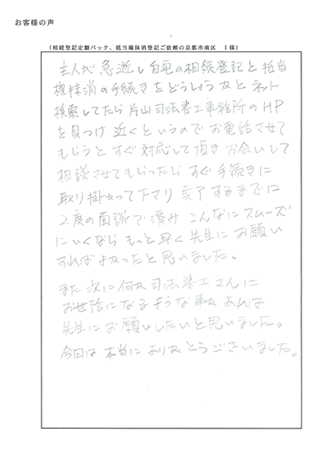 お客様の声
(相続登記定額パック、抵当権抹消登記ご依頼の京都市南区 I様)
主人が急逝し自宅の相続登記と抵当
権抹消の手続きをどうしようかとネット
検索してたら片山司法書士事務所のHP
を見つけ近くというのでお電話させて
もらうとすぐ対応して頂きお会いして
相談させてもらったらすぐ手続きに
取り掛かって下さり完了するまでに
2度の面談で済みこんなにスムーズ
にいくならもっと早く先生にお願い
すればよかったと思いました。
また次に何か司法書士さんに
お世話になるような事があれば
先生にお願いしたいと思いました。
今回は本当にありがとうございました。